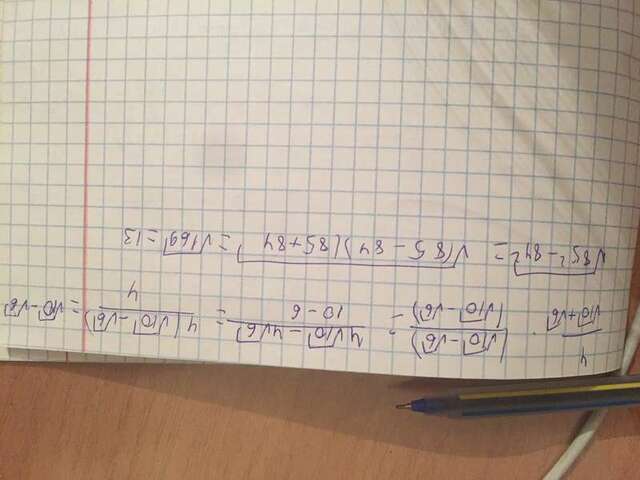 4/(√10+√6) · (√10-√6)/(√10-√6) = (4√10-4√6)/(10-6) = 4(√10-√6)/4 = √10-√6
√85²-84² = √(85-84)(85+84) = √169 = 13